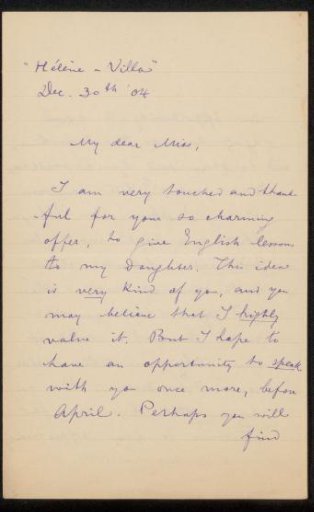 "Hélène-Villa"
Dec. 30th '04
My dear Miss,
I am very touched and thank
ful for your so charming
offer, to give English lesson
to my daughter. This idea
is very kind of you, and you
may believe that I highly
value it. But I hope to
have an opportunity to speak
with you once more, before
April. Perhaps you will
find